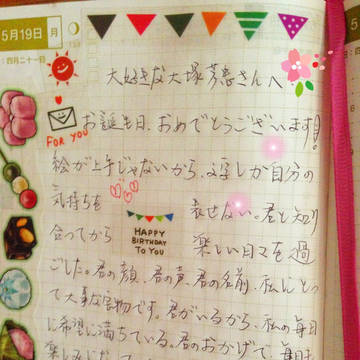 5月19日 月
:四月二十一日
大好きな大塚芳忠さんへ
お誕生日、おめでとうございます!
FOR YOU
絵が上手じゃないから、文字しか自分の
気持ちを 表せない。君と知り
合ってから 楽しい日々を過
HAPPY
BIRTHDAY
TO YOU
ごした。君の顔、君の声、君の名前、私にとっ
て大事な宝物です。君がいるから、私の毎日
に希望に満ちている。君のおかげで、毎日